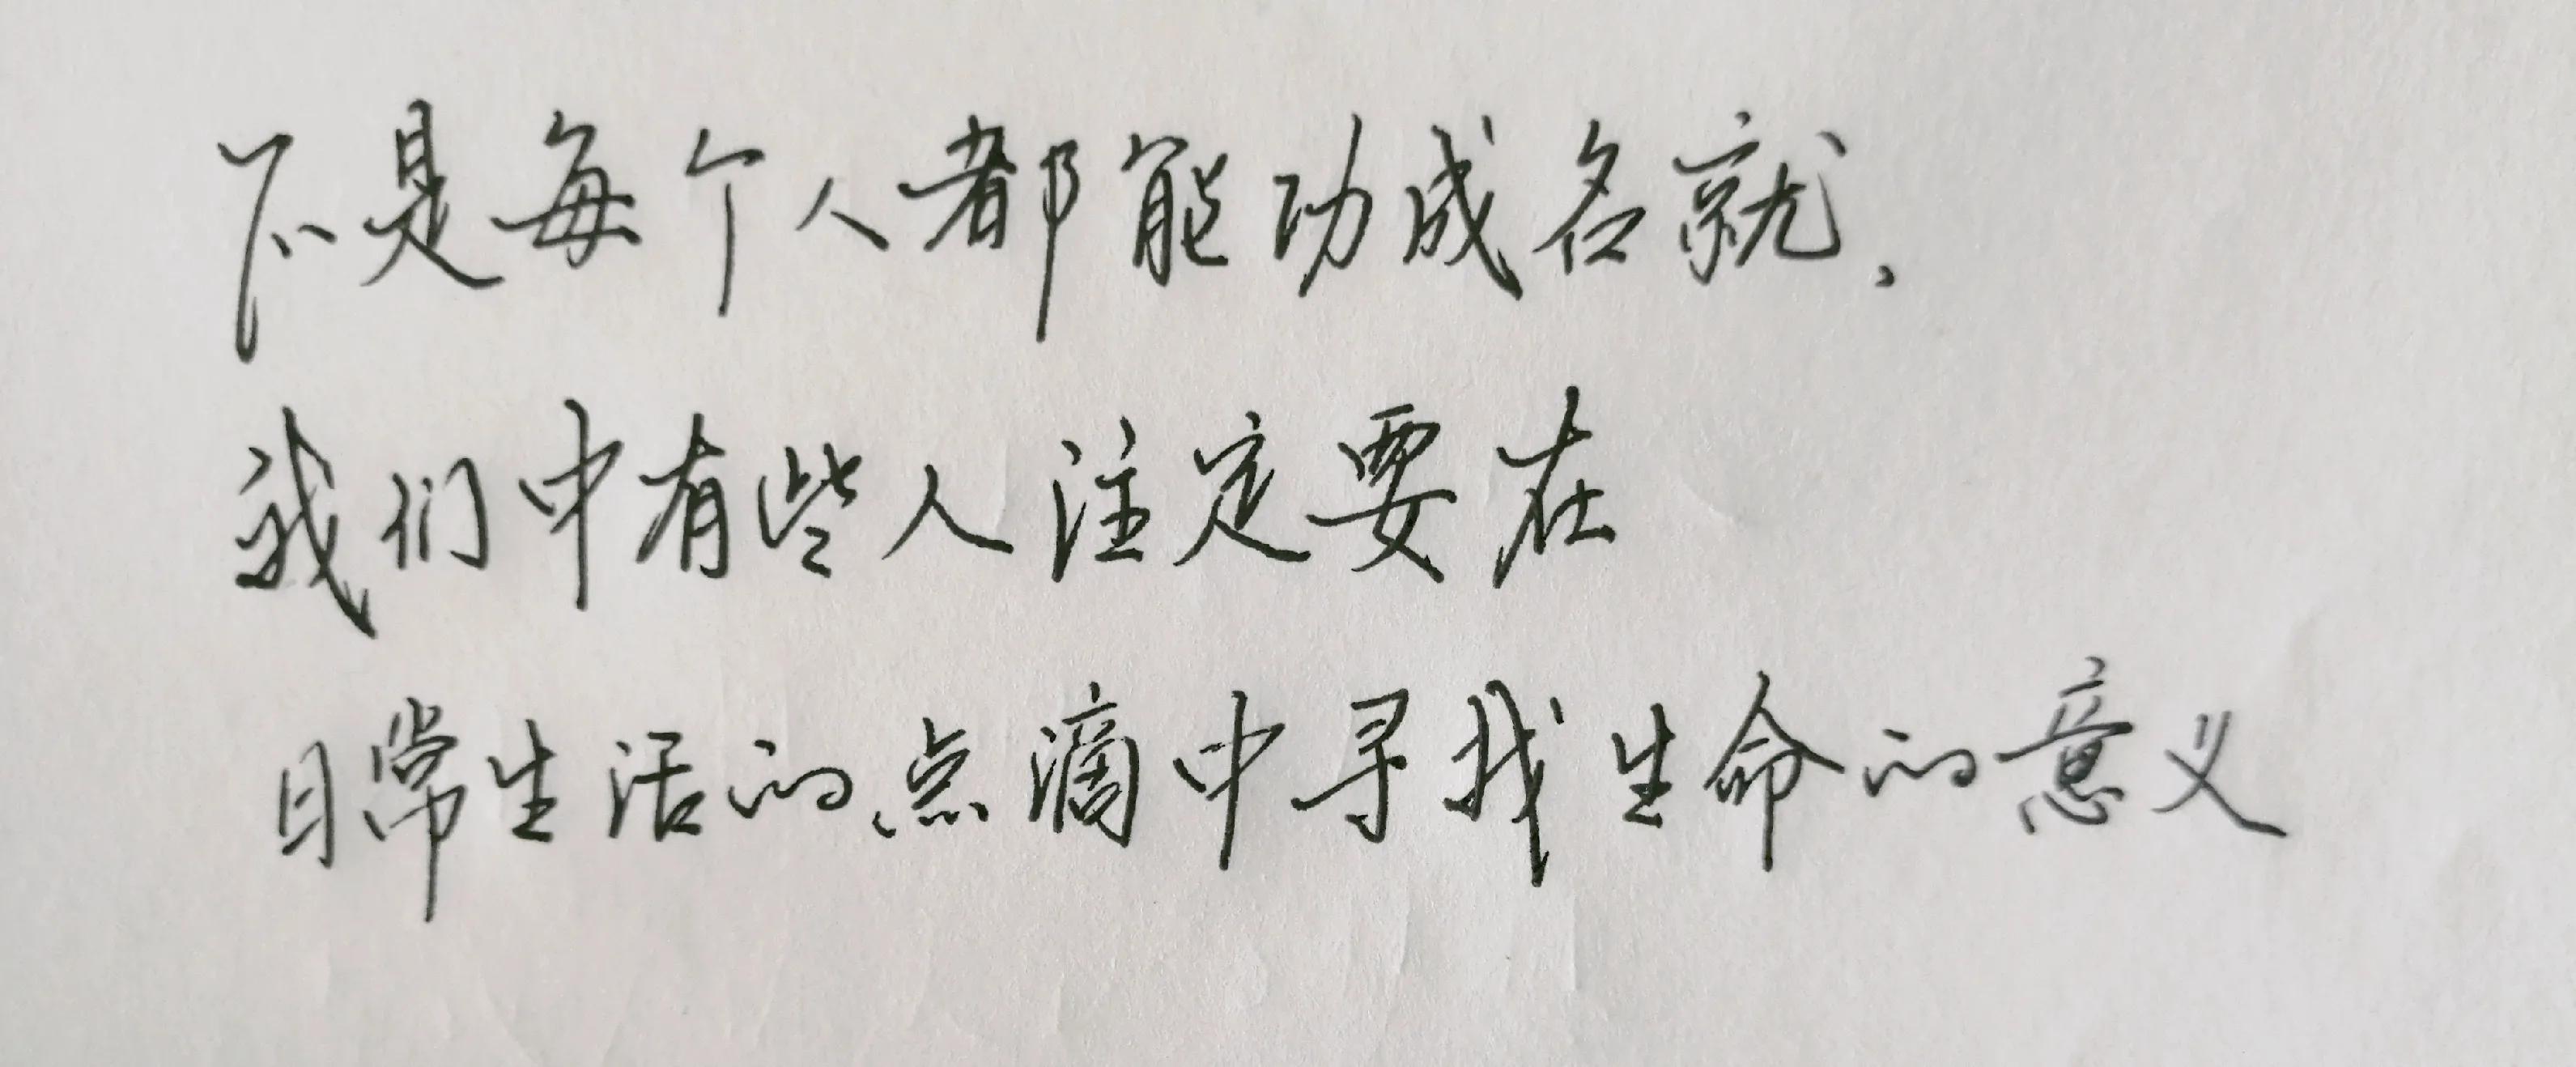 不是每个人都能功成名就，
我们中有些人注定要在
日常生活的点滴中寻找生命的意义